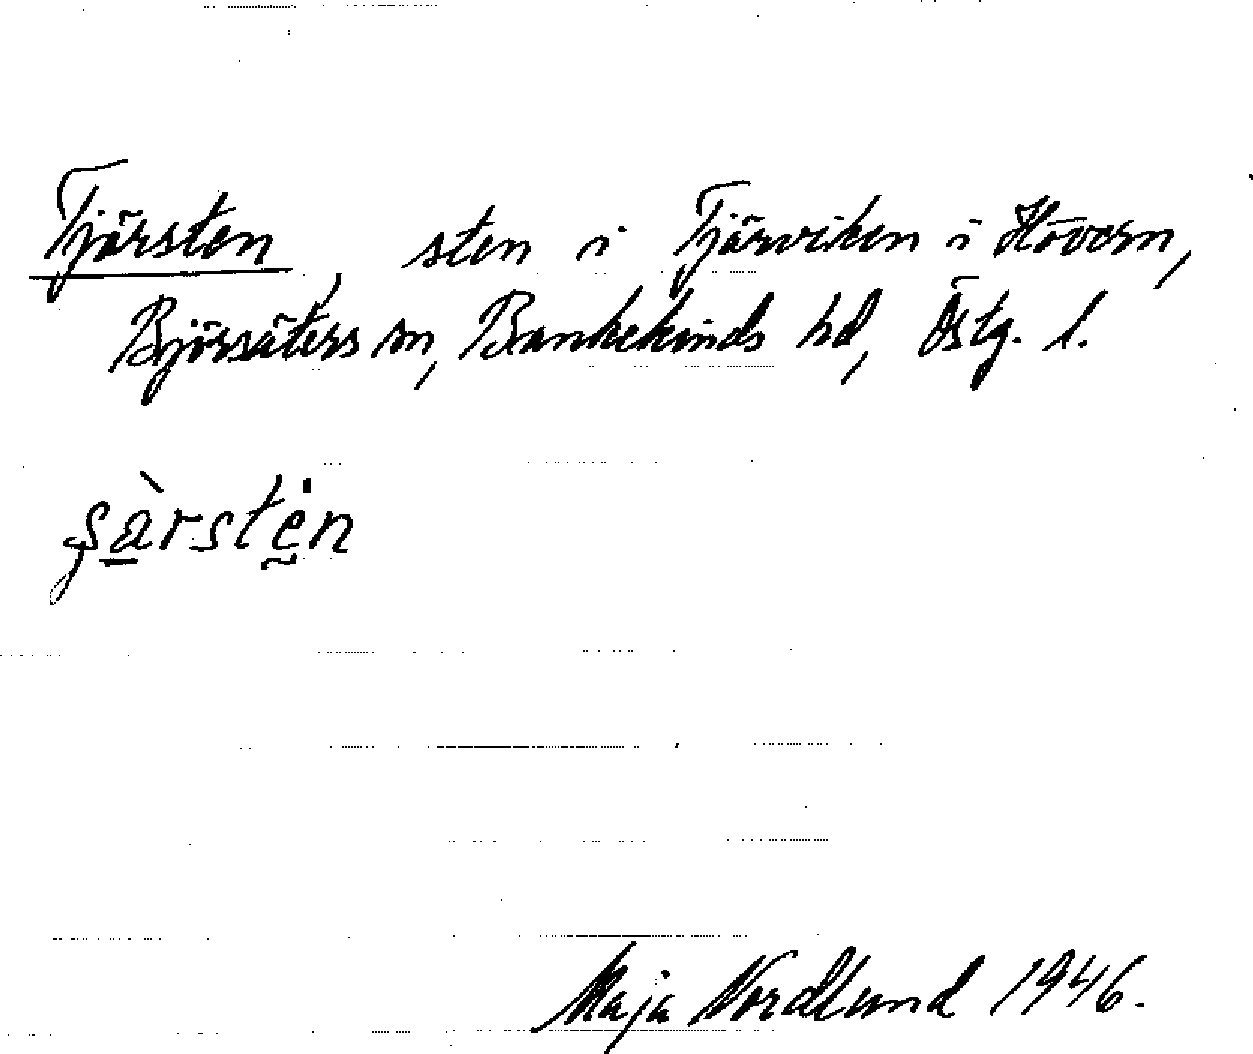 Tjärsten, sten i Tjärviken i Hövern,
Björsäters sn, Bankekinds hd, Östg. l.
Maja Nordlund 1946.